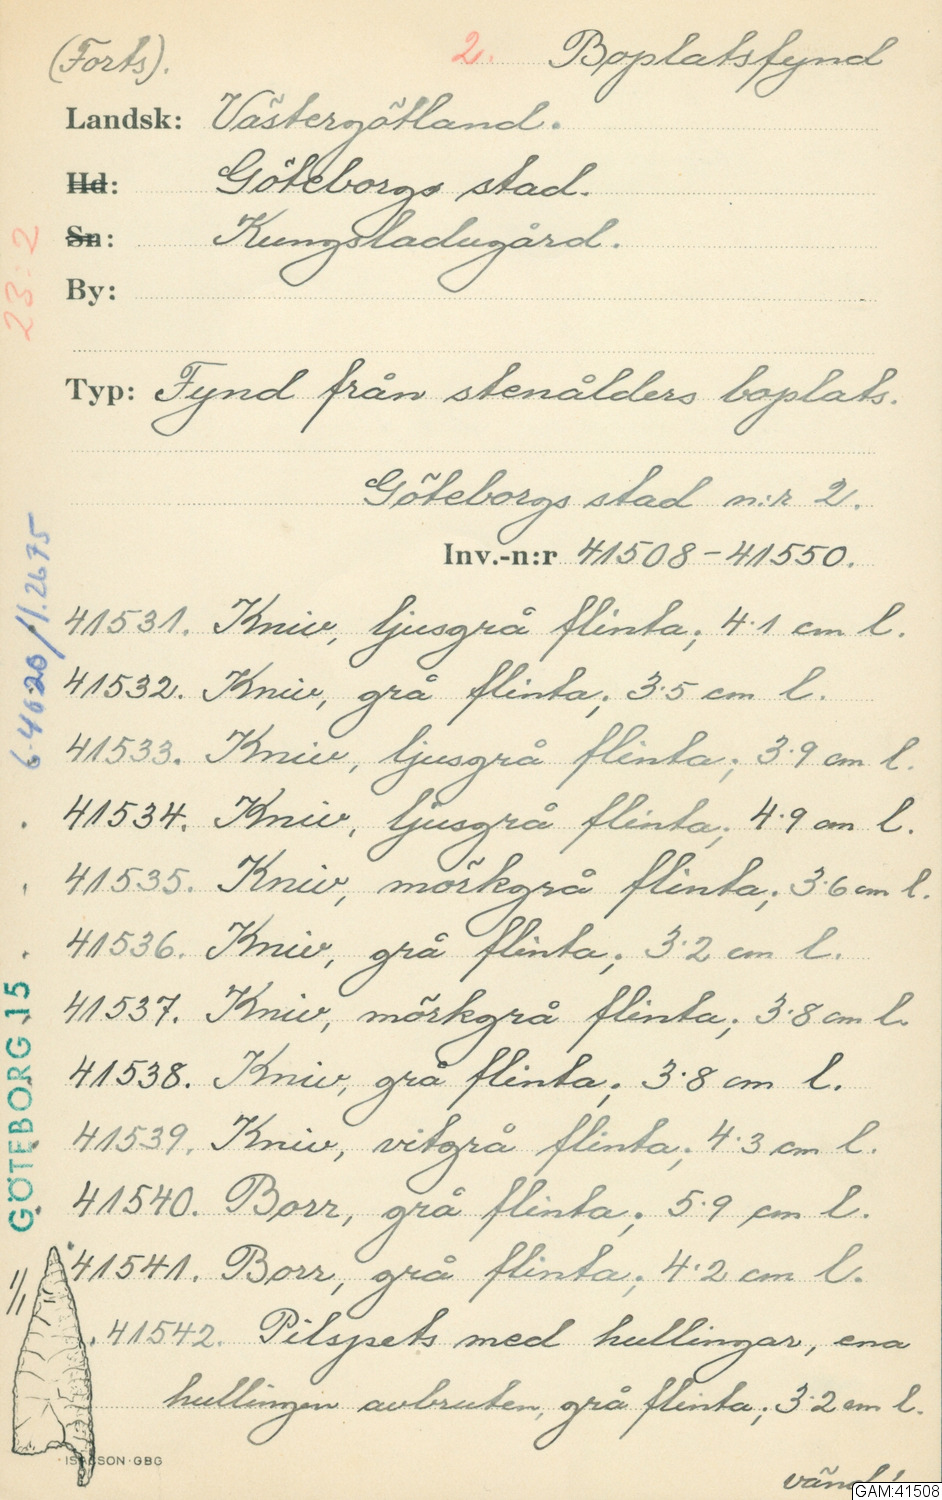 (Forts). 2. Boplatsfynd
Landsk: Västergötland.
Hd: Göteborgs stad.
Sn: Kungsladugård.
By:
Typ: Fynd från stenålders boplats.
Göteborgs stad n:r 2.
Inv.-n:r 41508-41550.
41531. Kniv, ljusgrå flinta; 4·1 cm l.
41532. Kniv, grå flinta; 3·5 cm l.
41533. Kniv, ljusgrå flinta; 3·9 cm l.
41534. Kniv, ljusgrå flinta; 4·9 cm l.
41535. Kniv, mörkgrå flinta; 3·6 cm l.
41536. Kniv, grå flinta; 3·2 cm l.
41537. Kniv, mörkgrå flinta; 3·8 cm l.
41538. Kniv, grå flinta; 3·8 cm l.
41539. Kniv, vitgrå flinta; 4·3 cm l.
41540. Borr, grå flinta; 5·9 cm l.
41541. Borr, grå flinta; 4·2 cm l.
41542. Pilspets med hullingar, ena
hullingen avbruten, grå flinta; 3·2 cm l.
vänd!
23:2
GÖTEBORG 15
1/1
ISACSON·GBG
GAM:41508